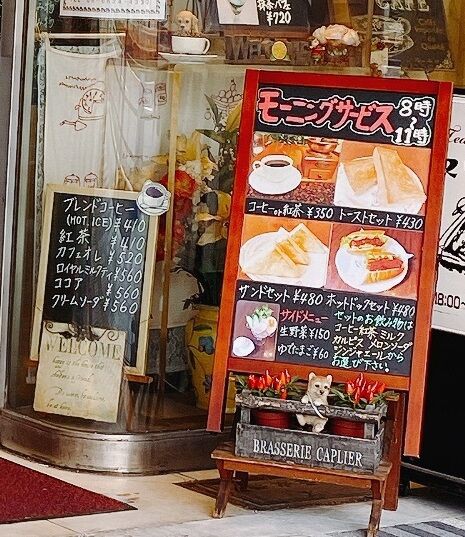 抹茶パフェ
¥720
WELCOME
モーニングサービス 8時~11時
コーヒーor紅茶 ¥350 トーストセット ¥430
サンドセット ¥480 ホットドックセット ¥480
サイドメニュー
生野菜 ¥150
ゆでたまご ¥60
セットのお飲み物は
コーヒー 紅茶 ミルク
カルピス メロンソーダ
ジンジャエールから
お選び下さい!
BRASSERIE CAPLIER
ブレンドコーヒー
(HOT, ICE) ¥410
紅茶 ¥410
カフェオレ ¥520
ロイヤルミルクティ ¥560
ココア ¥560
クリームソーダ ¥560
WELCOME
18:00